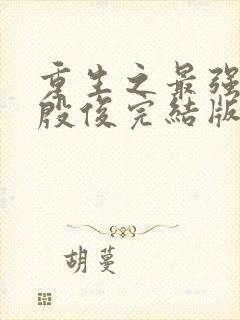 重生之最强
殷俊完結版
胡蔓